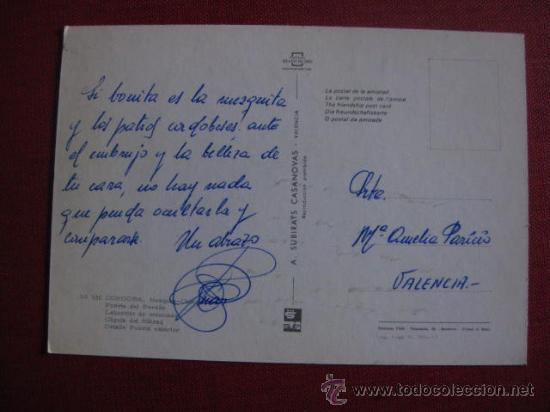 Si bonita es la mezquita
y los patios cordobeses ante
el embrujo y la belleza de
tu cara, no hay nada
que pueda
compararse. Un abrazo
CORDOBA.
Puerta del Perdón
Detalle Puerta exterior
A. SUBIRATS CASANOVAS - VALENCIA
Reproducción prohibida
La postal de la amistad
La carte postale de l'amitié
The friendship post card
Die Freundschaftskarte
O postal da amizade
Srta.
Mª Amelia Paricio
VALENCIA.-
todocoleccion.net